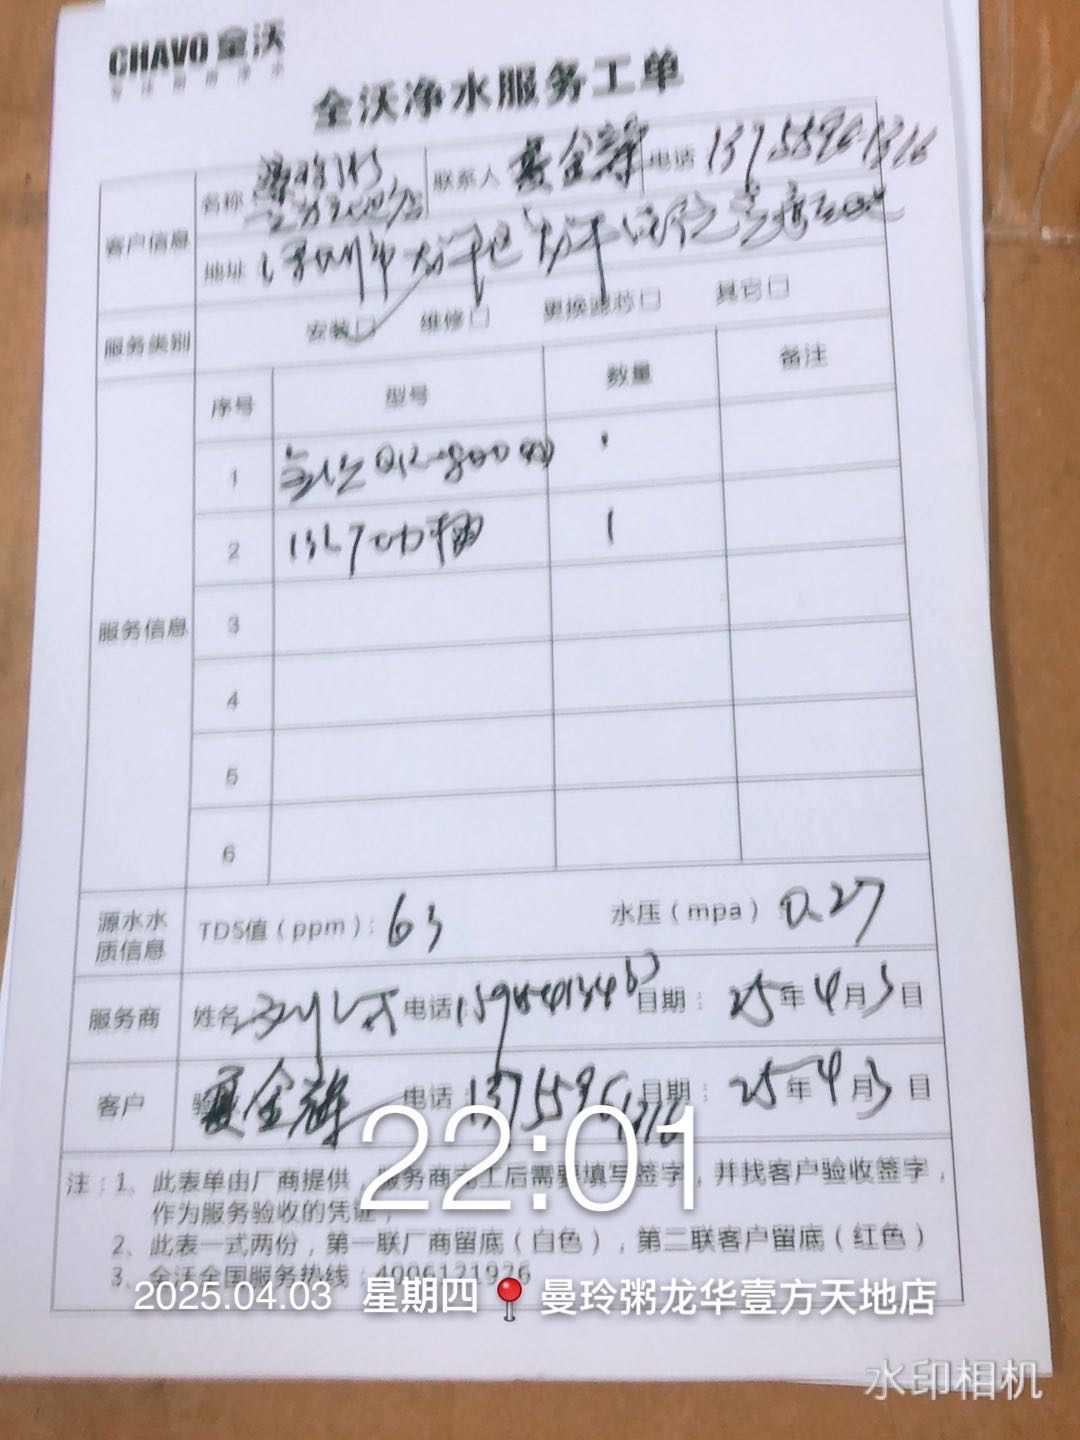 CHAVO 全沃
全沃净水服务工单
客户信息
名称
联系人 夏金辉
电话 13755961316
地址
服务类别
安装☑ 维修□ 更换滤芯□ 其它□
服务信息
序号 型号 数量 备注
1 1
2 1
3
4
5
6
源水水质信息
TDS值(ppm): 63 水压(mpa): 0.27
服务商 姓名: 电话: 日期: 25年4月3日
客户 夏金辉 电话: 13755961316 日期: 25年4月3日
注:1、此表单由厂商提供,服务商完工后需要填写签字,并找客户验收签字,
作为服务验收的凭证;
2、此表一式两份,第一联厂商留底(白色),第二联客户留底(红色)
3、全沃全国服务热线:4006121926
22:01
2025.04.03 星期四 曼玲粥龙华壹方天地店
水印相机